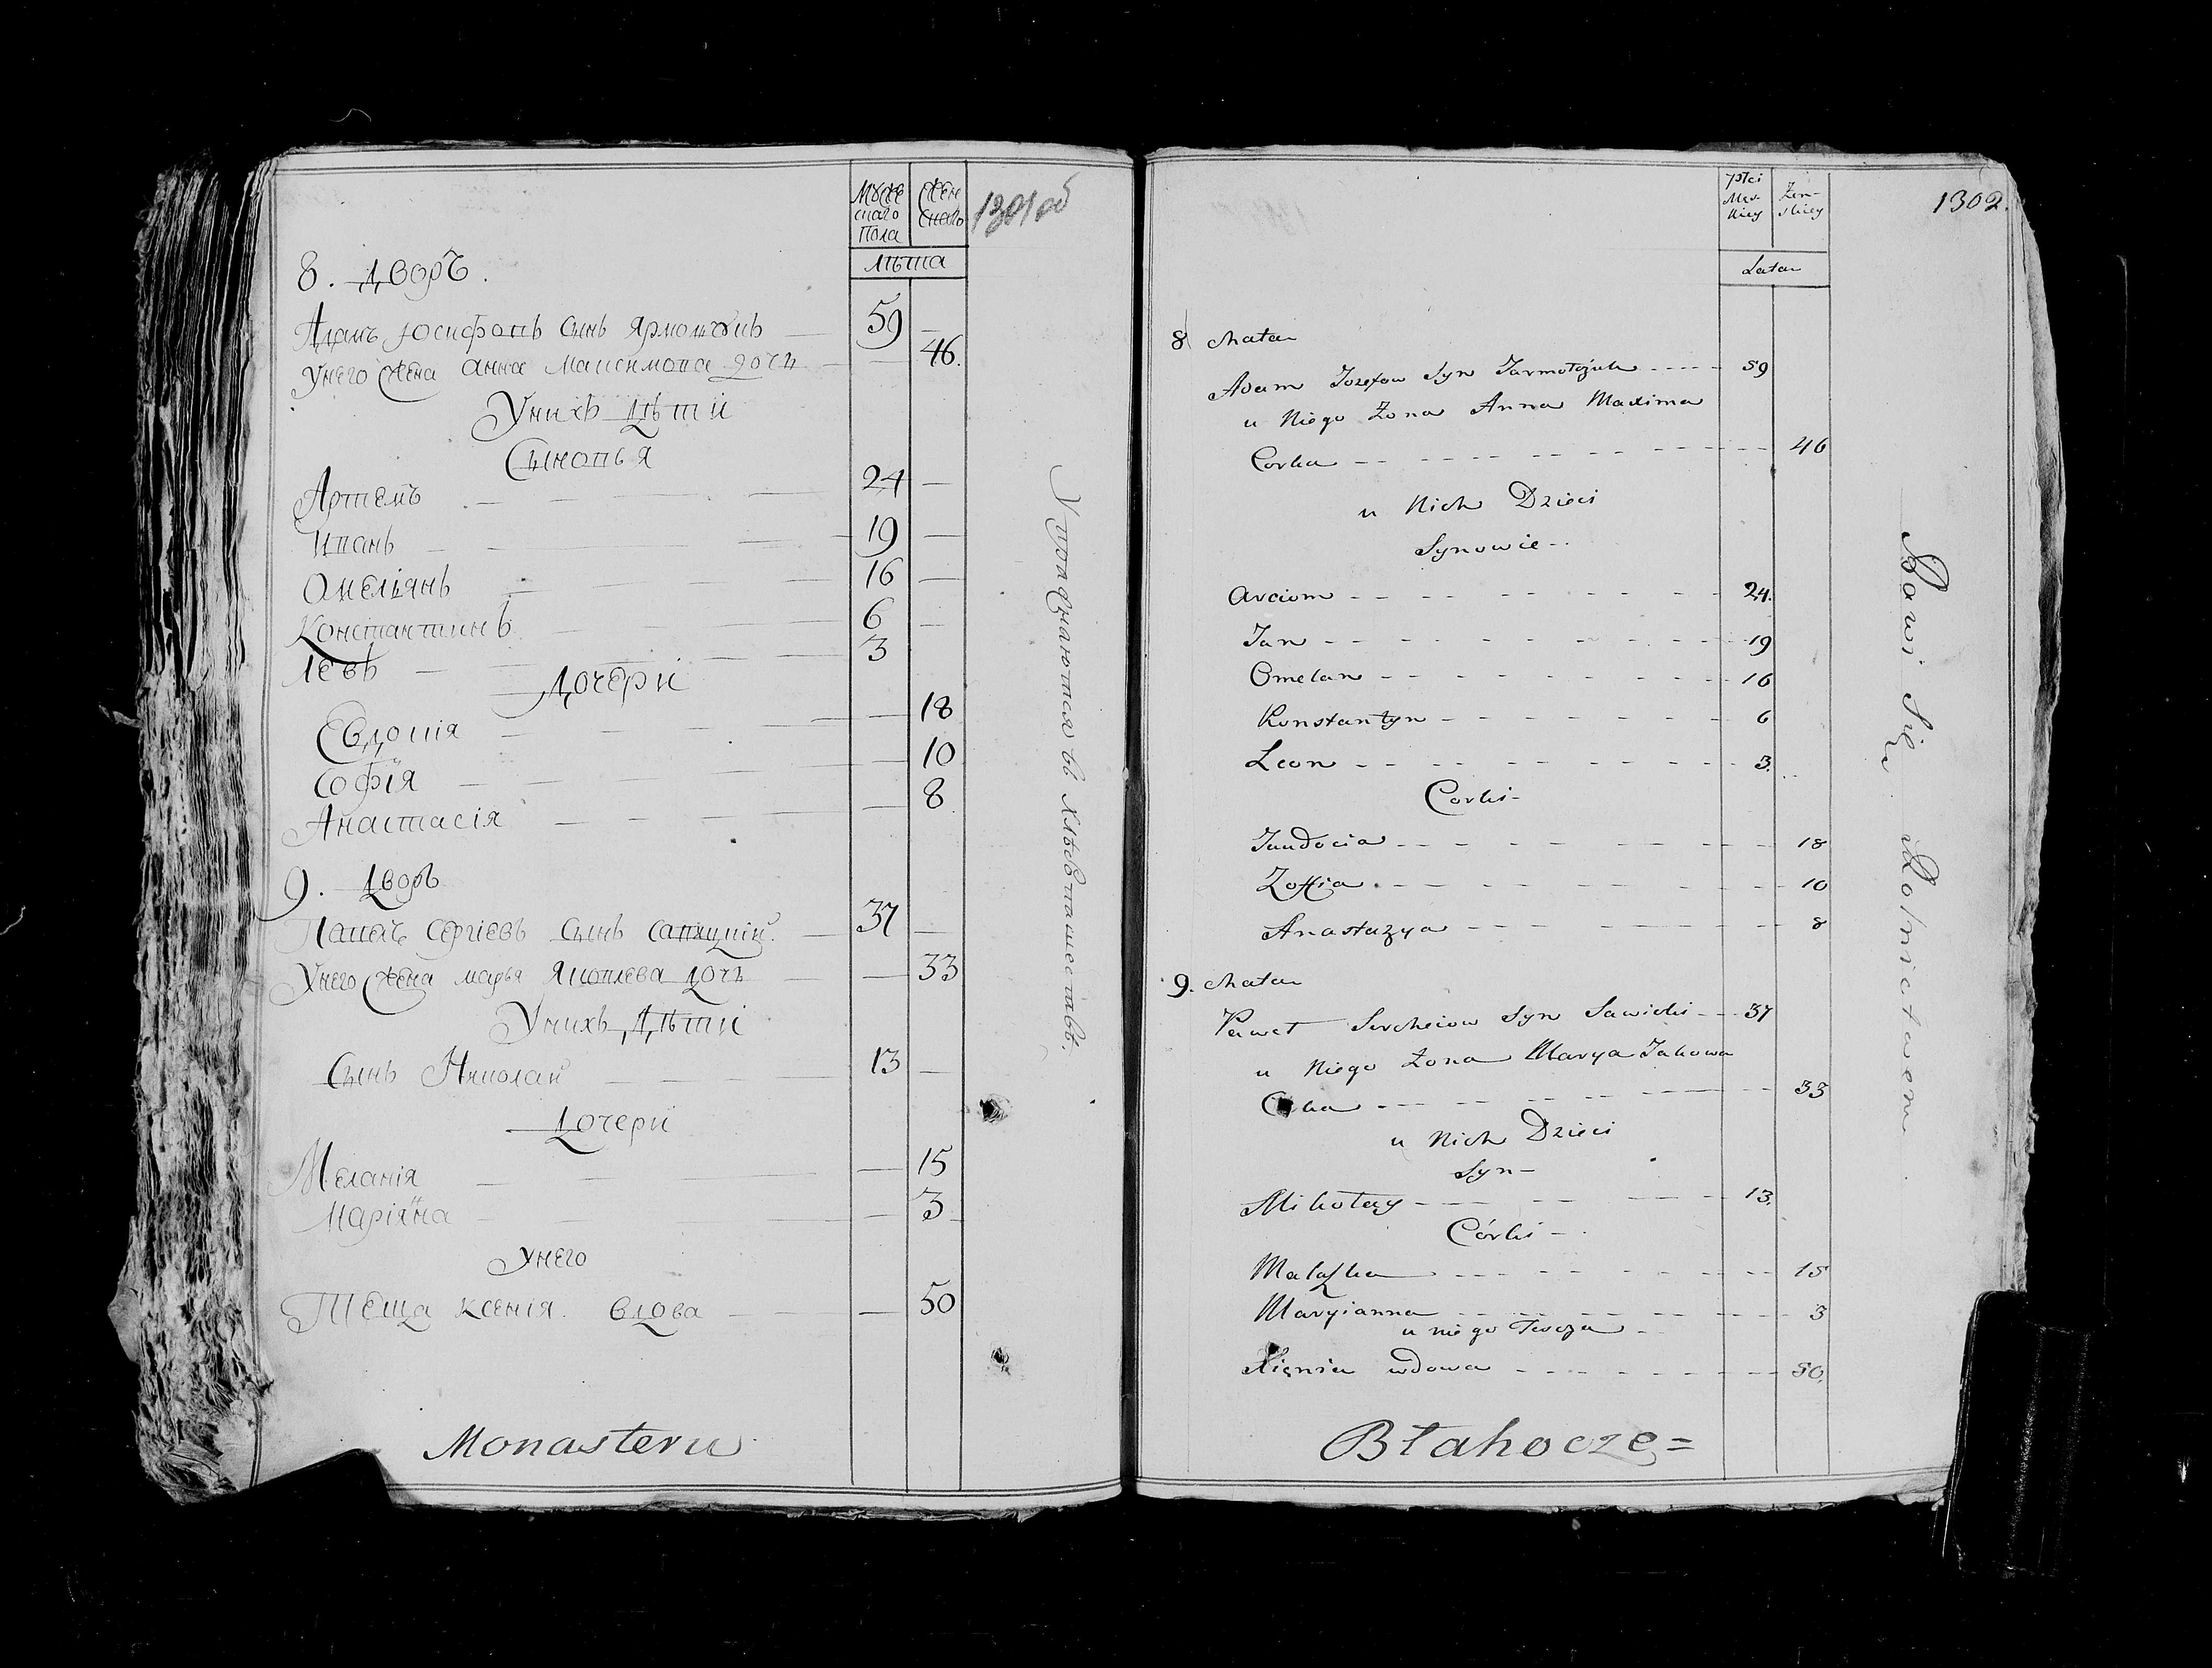 Мужескаго Пола
Женскаго
1301 об
лѣта
8. Дворъ.
Адамъ Юсифовъ сынъ Ярмолчукъ 59
Унего Жена Анна Максимова дочь 46.
Унихъ Дѣти
Сыновья
Артемъ 24
Иванъ 19
Омеліянъ 16
Константинъ 6
Левъ 3
Дочери
Евдокія 18
Софія 10
Анастасія 8
9. Дворъ
Павелъ Сергіевъ сынъ Савицкій 37
Унего Жена Марья Яковлева дочь 33
Унихъ Дѣти
Сынъ Николай 13
Дочери
Меланія 15
Маріяна 3
Унего
Теща Ксенія. Вдова 50
Monasteru
Упражнаются въ хлѣбопашествѣ.
płci Męskiey
Żenskiey
1302.
Lata
8 Chata
Adam Jozefow Syn Jarmołczuk 59
u Niego Żona Anna Maxima
Corka 46
u Nich Dzieci
Synowie
Arciom 24.
Jan 19
Omelan 16
Konstantyn 6
Leon 3.
Corki
Jaudocia 18
Zoffia 10
Anastazya 8
9. Chata
Paweł Serheiow Syn Sawicki 37
u Niego Żona Marya Jakowa
Corka 33
u Nich Dzieci
Syn
Mikołay 13.
Córki
Małaszka 15
Maryianna 3
u niego Tescza
Xienia wdowa 50.
Błahocze=
Bawi Się Rolnictwem